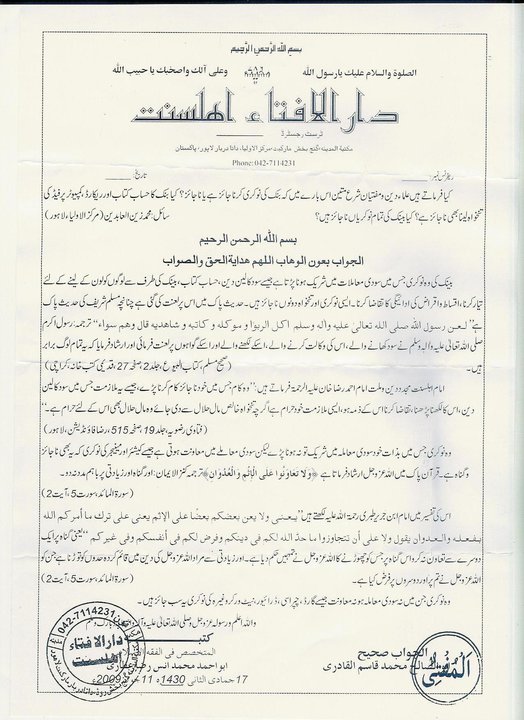 بسم الله الرحمن الرحیم
الصلوة والسلام علیك یارسول الله وعلی آلك واصحبك یا حبیب الله
دارالافتاء اهلسنت
ٹرسٹ رجسٹرڈ
مکتبة المدینه گنج بخش مارکیٹ، مرکز الاولیا، داتا دربار لاہور، پاکستان
Phone: 042-7114231
ریفرنس نمبر: تاریخ:
کیا فرماتے ہیں علماء دین و مفتیان شرع متین اس بارے میں کہ بنک کی نوکری کرنا جائز ہے یا ناجائز؟ کیا بنک کا حساب کتاب اور ریکارڈ، کمپیوٹر پر فیڈ کی
تنخواہ لینا بھی ناجائز ہے؟ کیا بینک کی تمام نوکریاں ناجائز ہیں؟ سائل: محمد زین العابدین (مرکز الاولیاء لاہور)
بسم الله الرحمن الرحیم
الجواب بعون الوهاب اللهم هدایة الحق والصواب
بینک کی وہ نوکری جس میں سودی معاملات میں شریک ہونا پڑتا ہے جیسے سود کا لین دین، حساب کتاب، بینک کی طرف سے لوگوں کو لون کے لینے کے لئے
تیار کرنا، اقساط و اقراض کی ادائیگی کا تقاضا کرنا۔ ایسی نوکری اور تنخواہ دونوں ناجائز ہیں۔ حدیث پاک میں اس پر لعنت کی گئی ہے چنانچہ مسلم شریف کی حدیث پاک
ہے "لعن رسول الله صلی الله تعالی علیه وآله وسلم اکل الربوا و موکله و کاتبه و شاهدیه قال وهم سواء" ترجمہ: رسول اکرم
صلی اللہ تعالی علیہ وآلہ وسلم نے سود کھانے والے، اس کی وکالت کرنے والے، اسکے لکھنے والے اور اسکے گواہوں پر لعنت فرمائی اور ارشاد فرمایا کہ یہ تمام لوگ برابر
ہیں۔ (صحیح مسلم، کتاب البیوع، جلد 2، ص 27، قدیمی کتب خانہ، کراچی)
امام اہلسنت مجدد دین و ملت امام احمد رضا خان علیہ الرحمۃ فرماتے ہیں: "وہ کام جس میں خود ناجائز کام کرنا پڑے، جیسے یہ ملازمت جس میں سود کا لین
دین، اس کا لکھنا پڑھنا، تقاضا کرنا اس کے ذمہ ہو، ایسی ملازمت خود حرام ہے اگرچہ تنخواہ خالص مال حلال سے دی جائے وہ مال حلال بھی اس کے لئے حرام ہے۔"
(فتاوی رضویہ، جلد 19، صفحہ 515، رضا فاؤنڈیشن، لاہور)
وہ نوکری جس میں بذات خود سودی معاملہ میں شریک تو نہ ہونا پڑے لیکن سودی معاملے میں معاونت ہوتی ہے جیسے کیشئر اور مینیجر کی نوکری کہ یہ بھی ناجائز
و گناہ ہے۔ قرآن پاک میں اللہ عزوجل ارشاد فرماتا ہے ﴿وَلَا تَعَاوَنُوا عَلَى الْإِثْمِ وَالْعُدْوَانِ﴾ ترجمہ کنز الایمان: اور گناہ اور زیادتی پر باہم مدد نہ دو۔
(سورۃ المائدہ، سورت 5، آیت 2)
اس کی تفسیر میں امام ابن جریر طبری رحمۃ اللہ علیہ لکھتے ہیں "یعنی ولا یعن بعضکم بعضا علی الاثم یعنی علی ترك ما امرکم الله
بفعله والعدوان یقول ولا علی أن تتجاوزوا ما حد الله لکم فی دینکم وفرض لکم فی أنفسکم وفی غیرکم" یعنی گناہ پر ایک
دوسرے سے تعاون نہ کرو اس گناہ پر جس کو چھوڑنے کا اللہ عزوجل نے تمہیں حکم دیا ہے۔ اور زیادتی سے مراد اللہ عزوجل کی دین میں قائم کردہ حدوں کو توڑنا ہے جن کو
اللہ عزوجل نے تم پر اور دوسروں پر فرض کیا ہے۔ (سورۃ المائدہ، سورت 5، آیت 2)
وہ نوکری جس میں نہ سودی معاملہ ہو نہ معاونت جیسے گارڈ، چپراسی، ڈرائیور، نیٹ ورکر وغیرہ کی نوکری یہ سب جائز ہیں۔
والله اعلم ورسوله عزوجل وصلی الله تعالی علیه وآله وبارك وسلم
کتبه
المتخصص فی الفقه
ابو احمد محمد انس رضا عطاری
17 جمادی الثانی 1430ھ 11 جون 2009ء
الجواب صحیح
محمد قاسم القادری
دارالافتاء
اهلسنت
042-7114231
المفتی